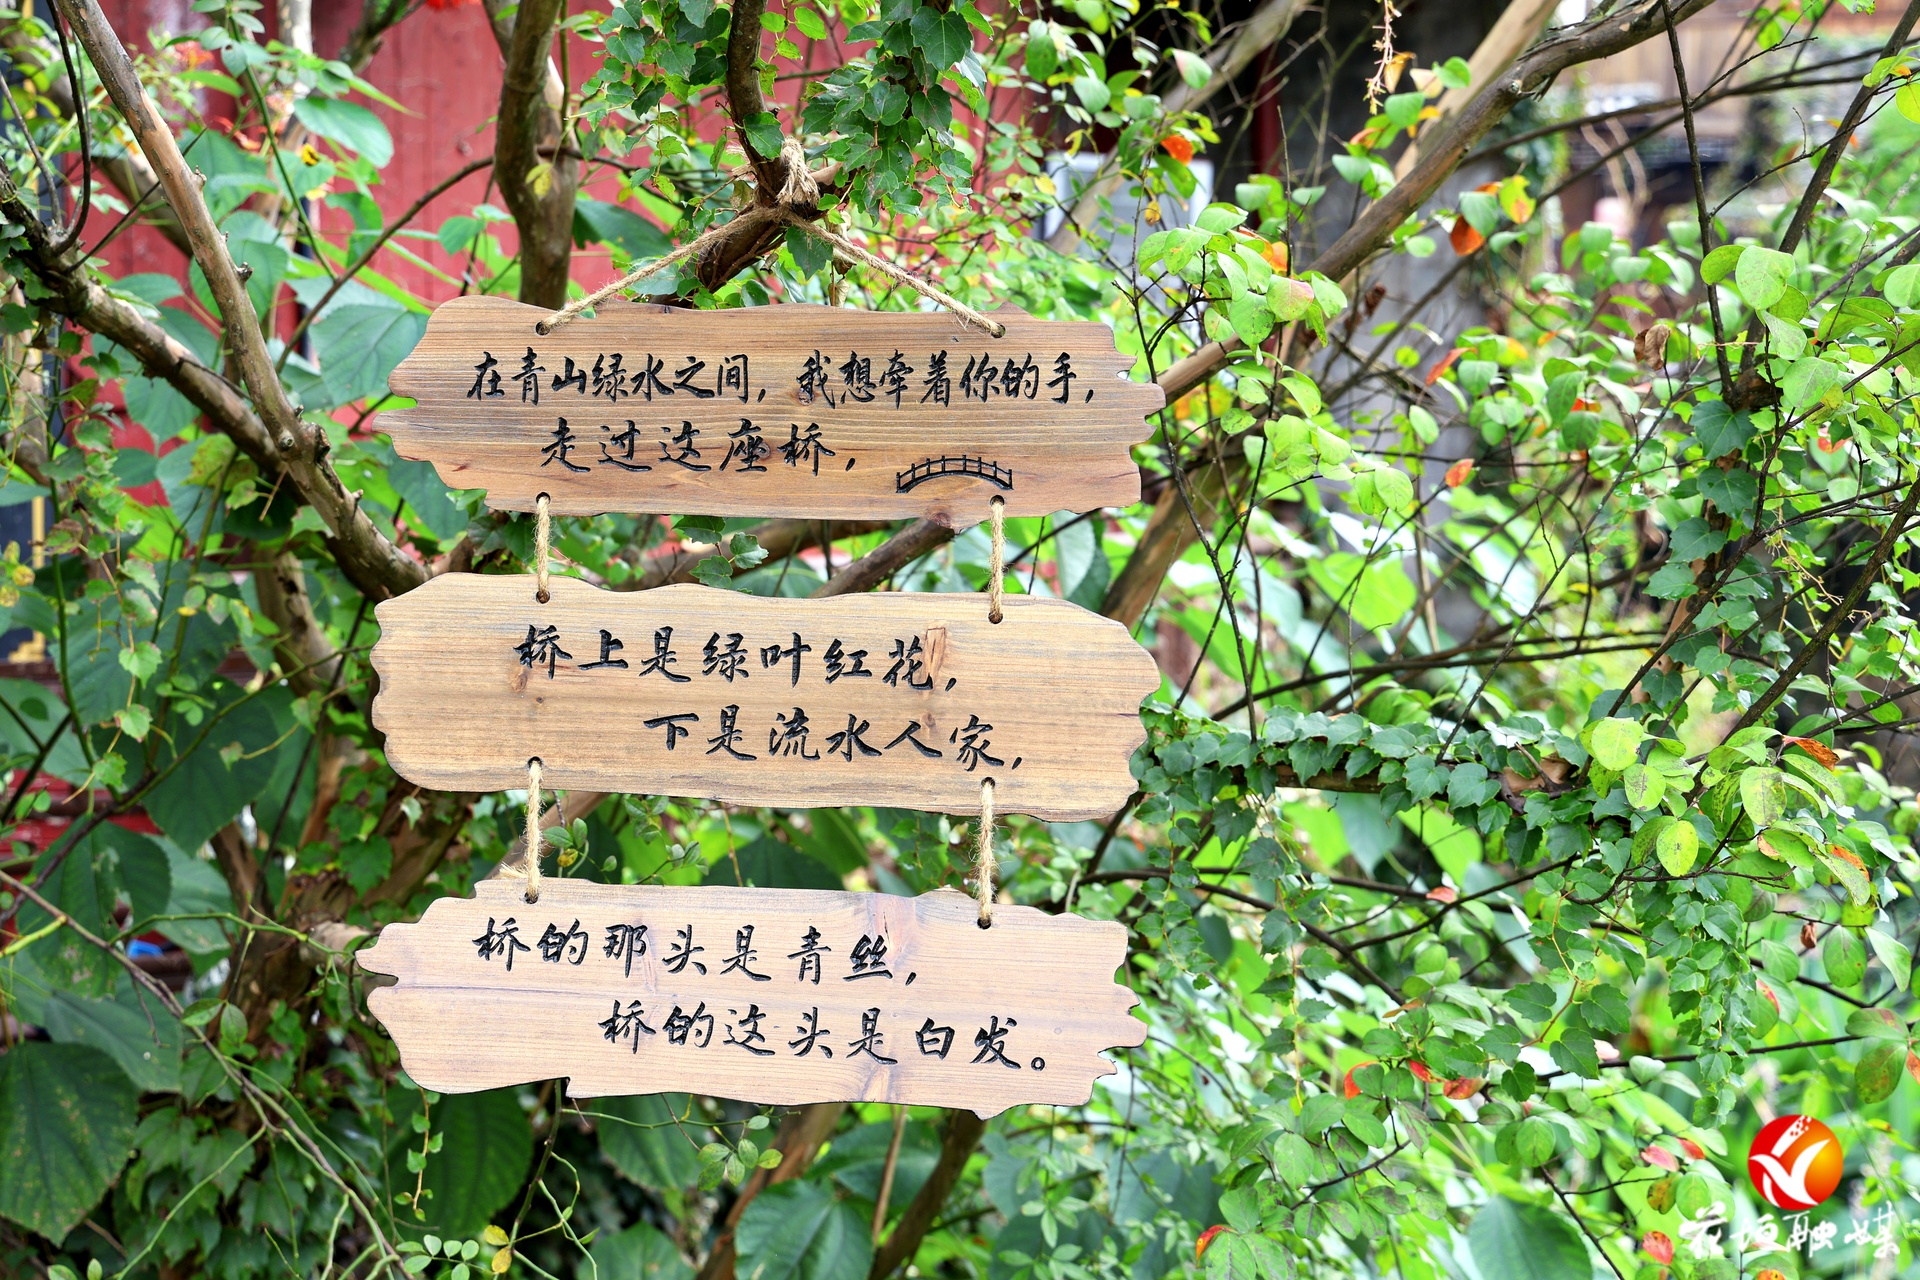 在青山绿水之间，我想牵着你的手，
走过这座桥，
桥上是绿叶红花，
下是流水人家，
桥的那头是青丝，
桥的这头是白发。
花垣融媒